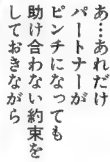 あ…あれだけ
パートナーが
ピンチになっても
助け合わない約束を
しておきながら